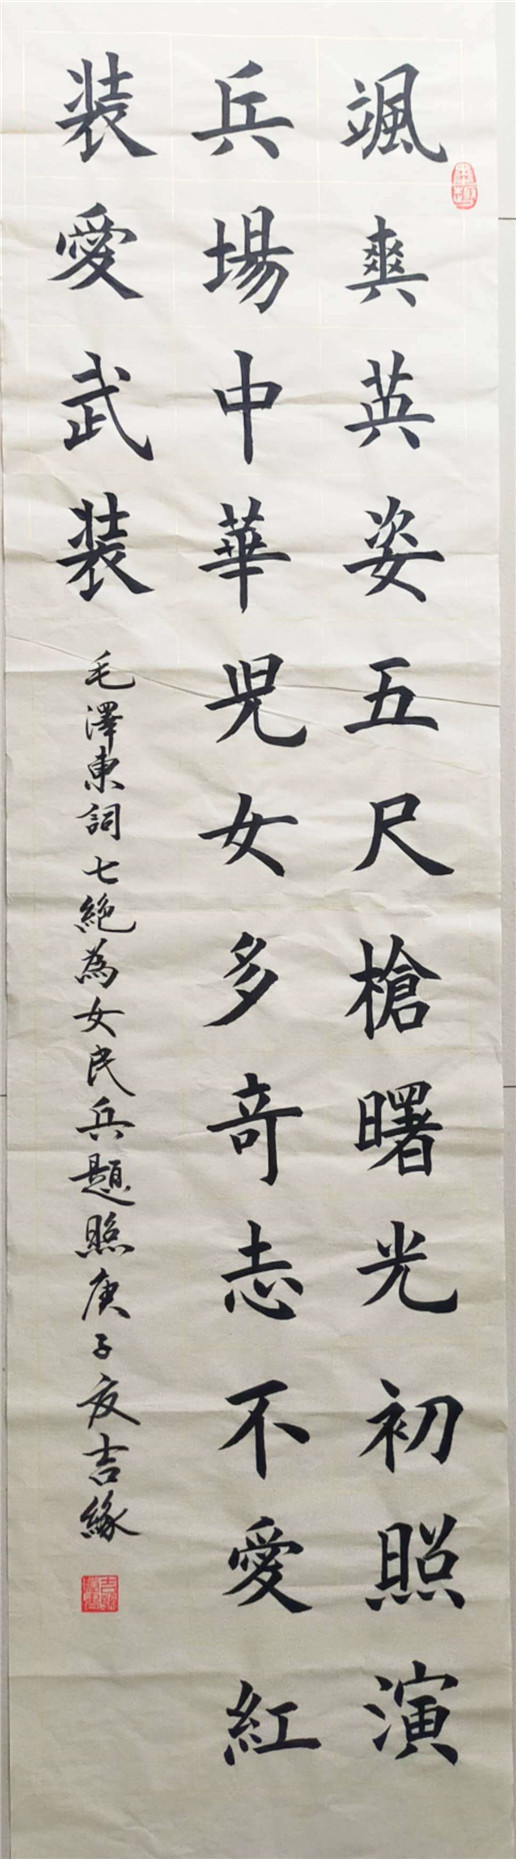 颯爽英姿五尺槍曙光初照演
兵場中華兒女多奇志不愛紅
裝愛武裝
毛澤東詞七絕為女民兵題照庚子夜吉緣